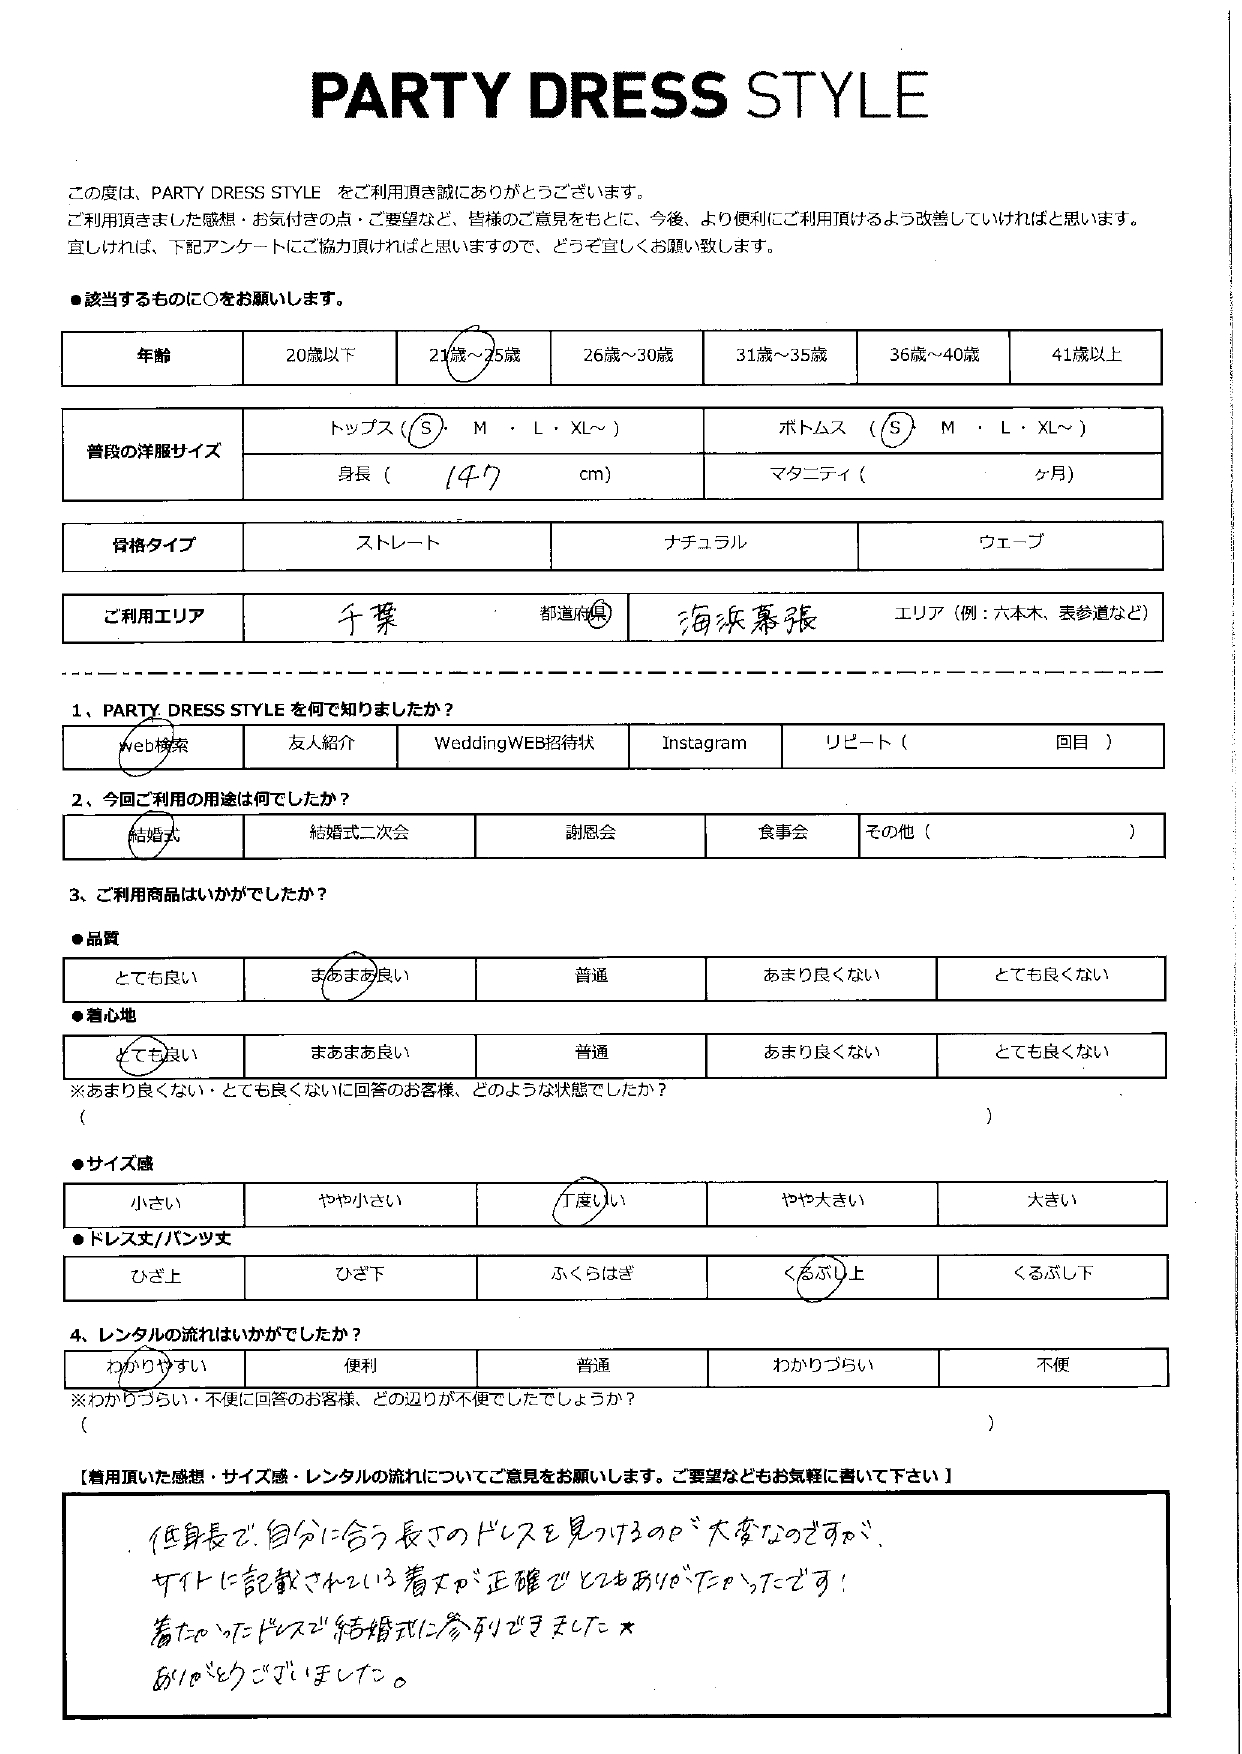 PARTY DRESS STYLE
この度は、PARTY DRESS STYLE をご利用頂き誠にありがとうございます。
ご利用頂きました感想・お気付きの点・ご要望など、皆様のご意見をもとに、今後、より便利にご利用頂けるよう改善していければと思います。
宜しければ、下記アンケートにご協力頂ければと思いますので、どうぞ宜しくお願い致します。
●該当するものに○をお願いします。
年齢 20歳以下 21歳～25歳 26歳～30歳 31歳～35歳 36歳～40歳 41歳以上
普段の洋服サイズ
トップス (S・ M ・ L・ XL～ ) ボトムス (S・ M ・ L・ XL～ )
身長 ( 147 cm) マタニティ ( ヶ月)
骨格タイプ ストレート ナチュラル ウェーブ
ご利用エリア 千葉 都道府県 海浜幕張 エリア（例：六本木、表参道など）
1、PARTY DRESS STYLE を何で知りましたか？
web検索 友人紹介 WeddingWEB招待状 Instagram リピート ( 回目 )
2、今回ご利用の用途は何でしたか？
結婚式 結婚式二次会 謝恩会 食事会 その他 ( )
3、ご利用商品はいかがでしたか？
●品質
とても良い まあまあ良い 普通 あまり良くない とても良くない
●着心地
とても良い まあまあ良い 普通 あまり良くない とても良くない
※あまり良くない・とても良くないに回答のお客様、どのような状態でしたか？
( )
●サイズ感
小さい やや小さい 丁度いい やや大きい 大きい
●ドレス丈/パンツ丈
ひざ上 ひざ下 ふくらはぎ くるぶし上 くるぶし下
4、レンタルの流れはいかがでしたか？
わかりやすい 便利 普通 わかりづらい 不便
※わかりづらい・不便に回答のお客様、どの辺りが不便でしたでしょうか？
( )
【着用頂いた感想・サイズ感・レンタルの流れについてご意見をお願いします。ご要望などもお気軽に書いて下さい 】
低身長で、自分に合う長さのドレスを見つけるのが大変なのですが、
サイトに記載されている着丈が正確でとてもありがたかったです！
着たかったドレスで結婚式に参列できました★
ありがとうございました。